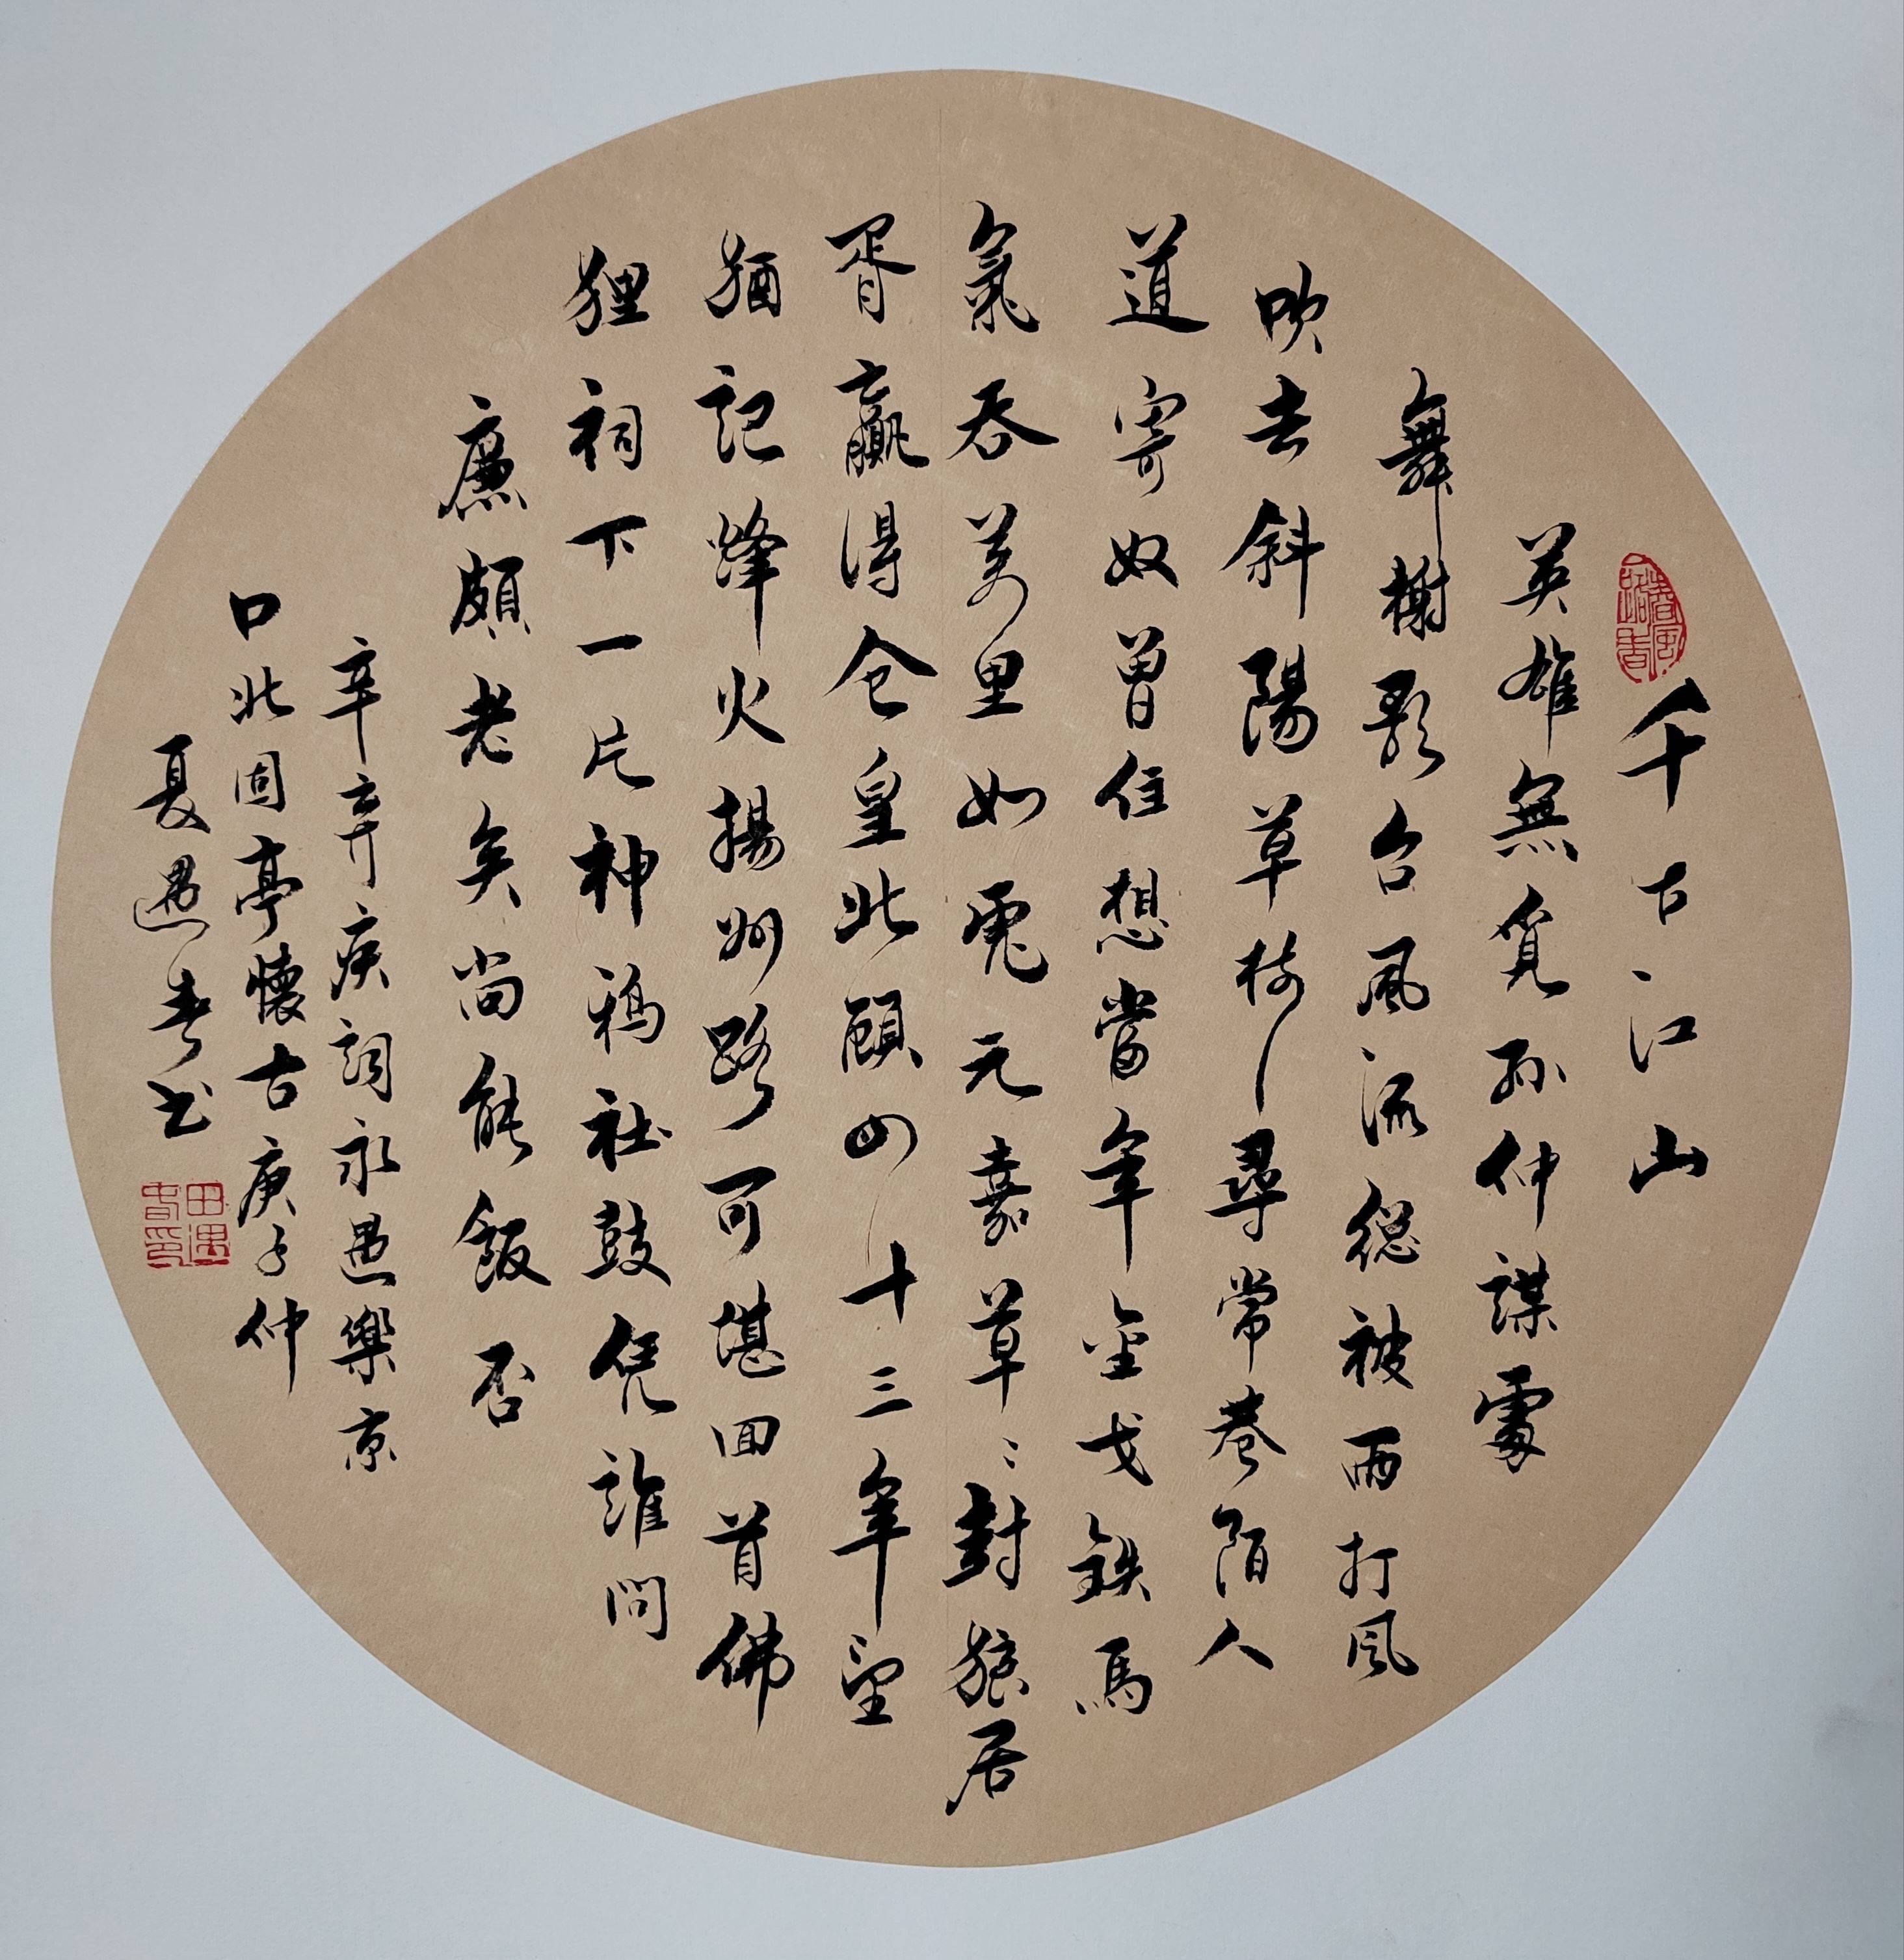 千古江山
英雄無覓孫仲謀處
舞榭歌台風流總被雨打風
吹去斜陽草樹尋常巷陌人
道寄奴曾住想當年金戈鐵馬
氣吞萬里如虎元嘉草〻封狼居
胥贏得倉皇北顧四十三年望
猶記烽火揚州路可堪回首佛
狸祠下一片神鴉社鼓凭誰問
廉頗老矣尚能飯否
辛弃疾詞永遇樂京
口北固亭懷古庚子仲
夏遇春书
田遇春印